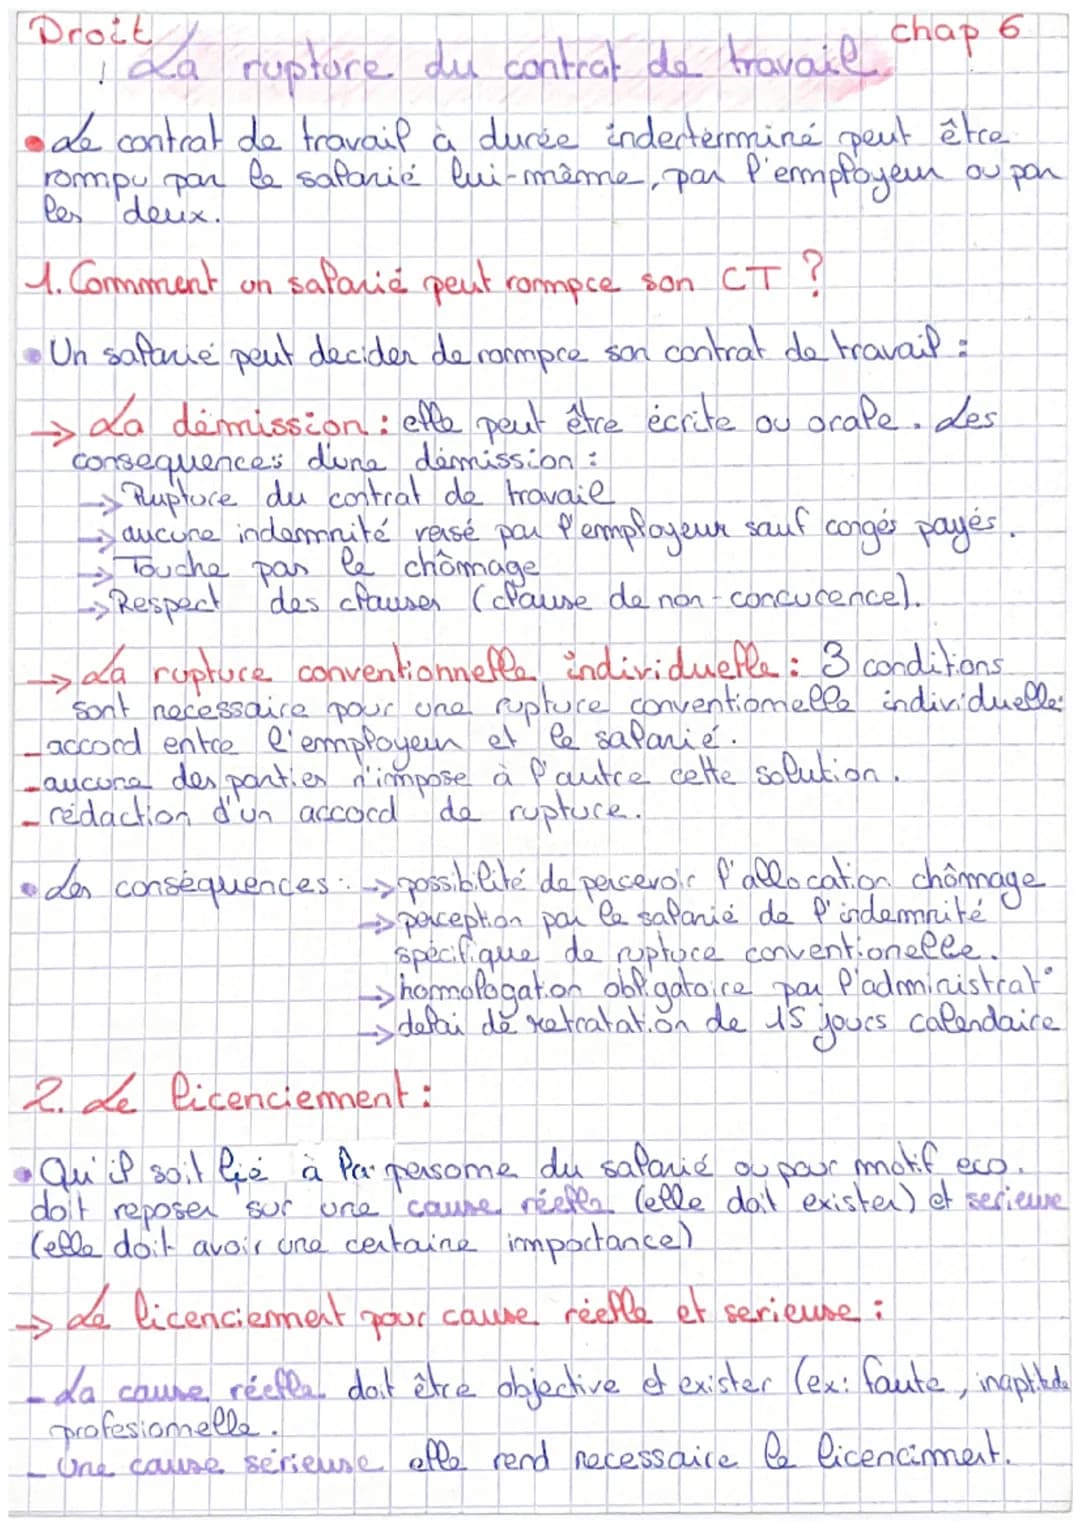 Droit
chap 6
! La rupture du contrat de travail
• Le contrat de travail à durée indeterminé peut être
rompu par le salarié lui-même, par l'employeur ou par
les deux.
1. Comment un salarié peut rompre son CT ?
• Un salarié peut decider de rompre son contrat de travail :
→ La démission : elle peut être écrite ou orale. Les
consequences d'une démission :
→ Rupture du contrat de travail
→ aucune indemnité versé par l'employeur sauf congés payés.
→ Touche pas le chômage
→ Respect des clauses (clause de non-concurence).
→ La rupture conventionnelle individuelle : 3 conditions
sont necessaire pour une rupture conventionnelle individuelle:
- accord entre l'employeur et le salarié.
- aucune des parties n'impose à l'autre cette solution.
- rédaction d'un accord de rupture.
• Les conséquences : → possibilité de percevoir l'allocation chômage
→ perception par le salarié de l'indemnité
spécifique de rupture conventionelle.
→ homologation obligatoire par l'administrat°
→ delai de retratation de 15 jours calendaire
2. Le licenciement :
• Qu'il soit lié à la personne du salarié ou pour motif eco.
doit reposer sur une cause réelle (elle doit exister) et serieuse
(elle doit avoir une certaine importance)
→ Le licenciement pour cause réelle et serieuse :
- La cause réelle doit être objective et exister (ex: faute, inaptitude
profesionnelle.
- Une cause sérieuse elle rend necessaire le licenciment.